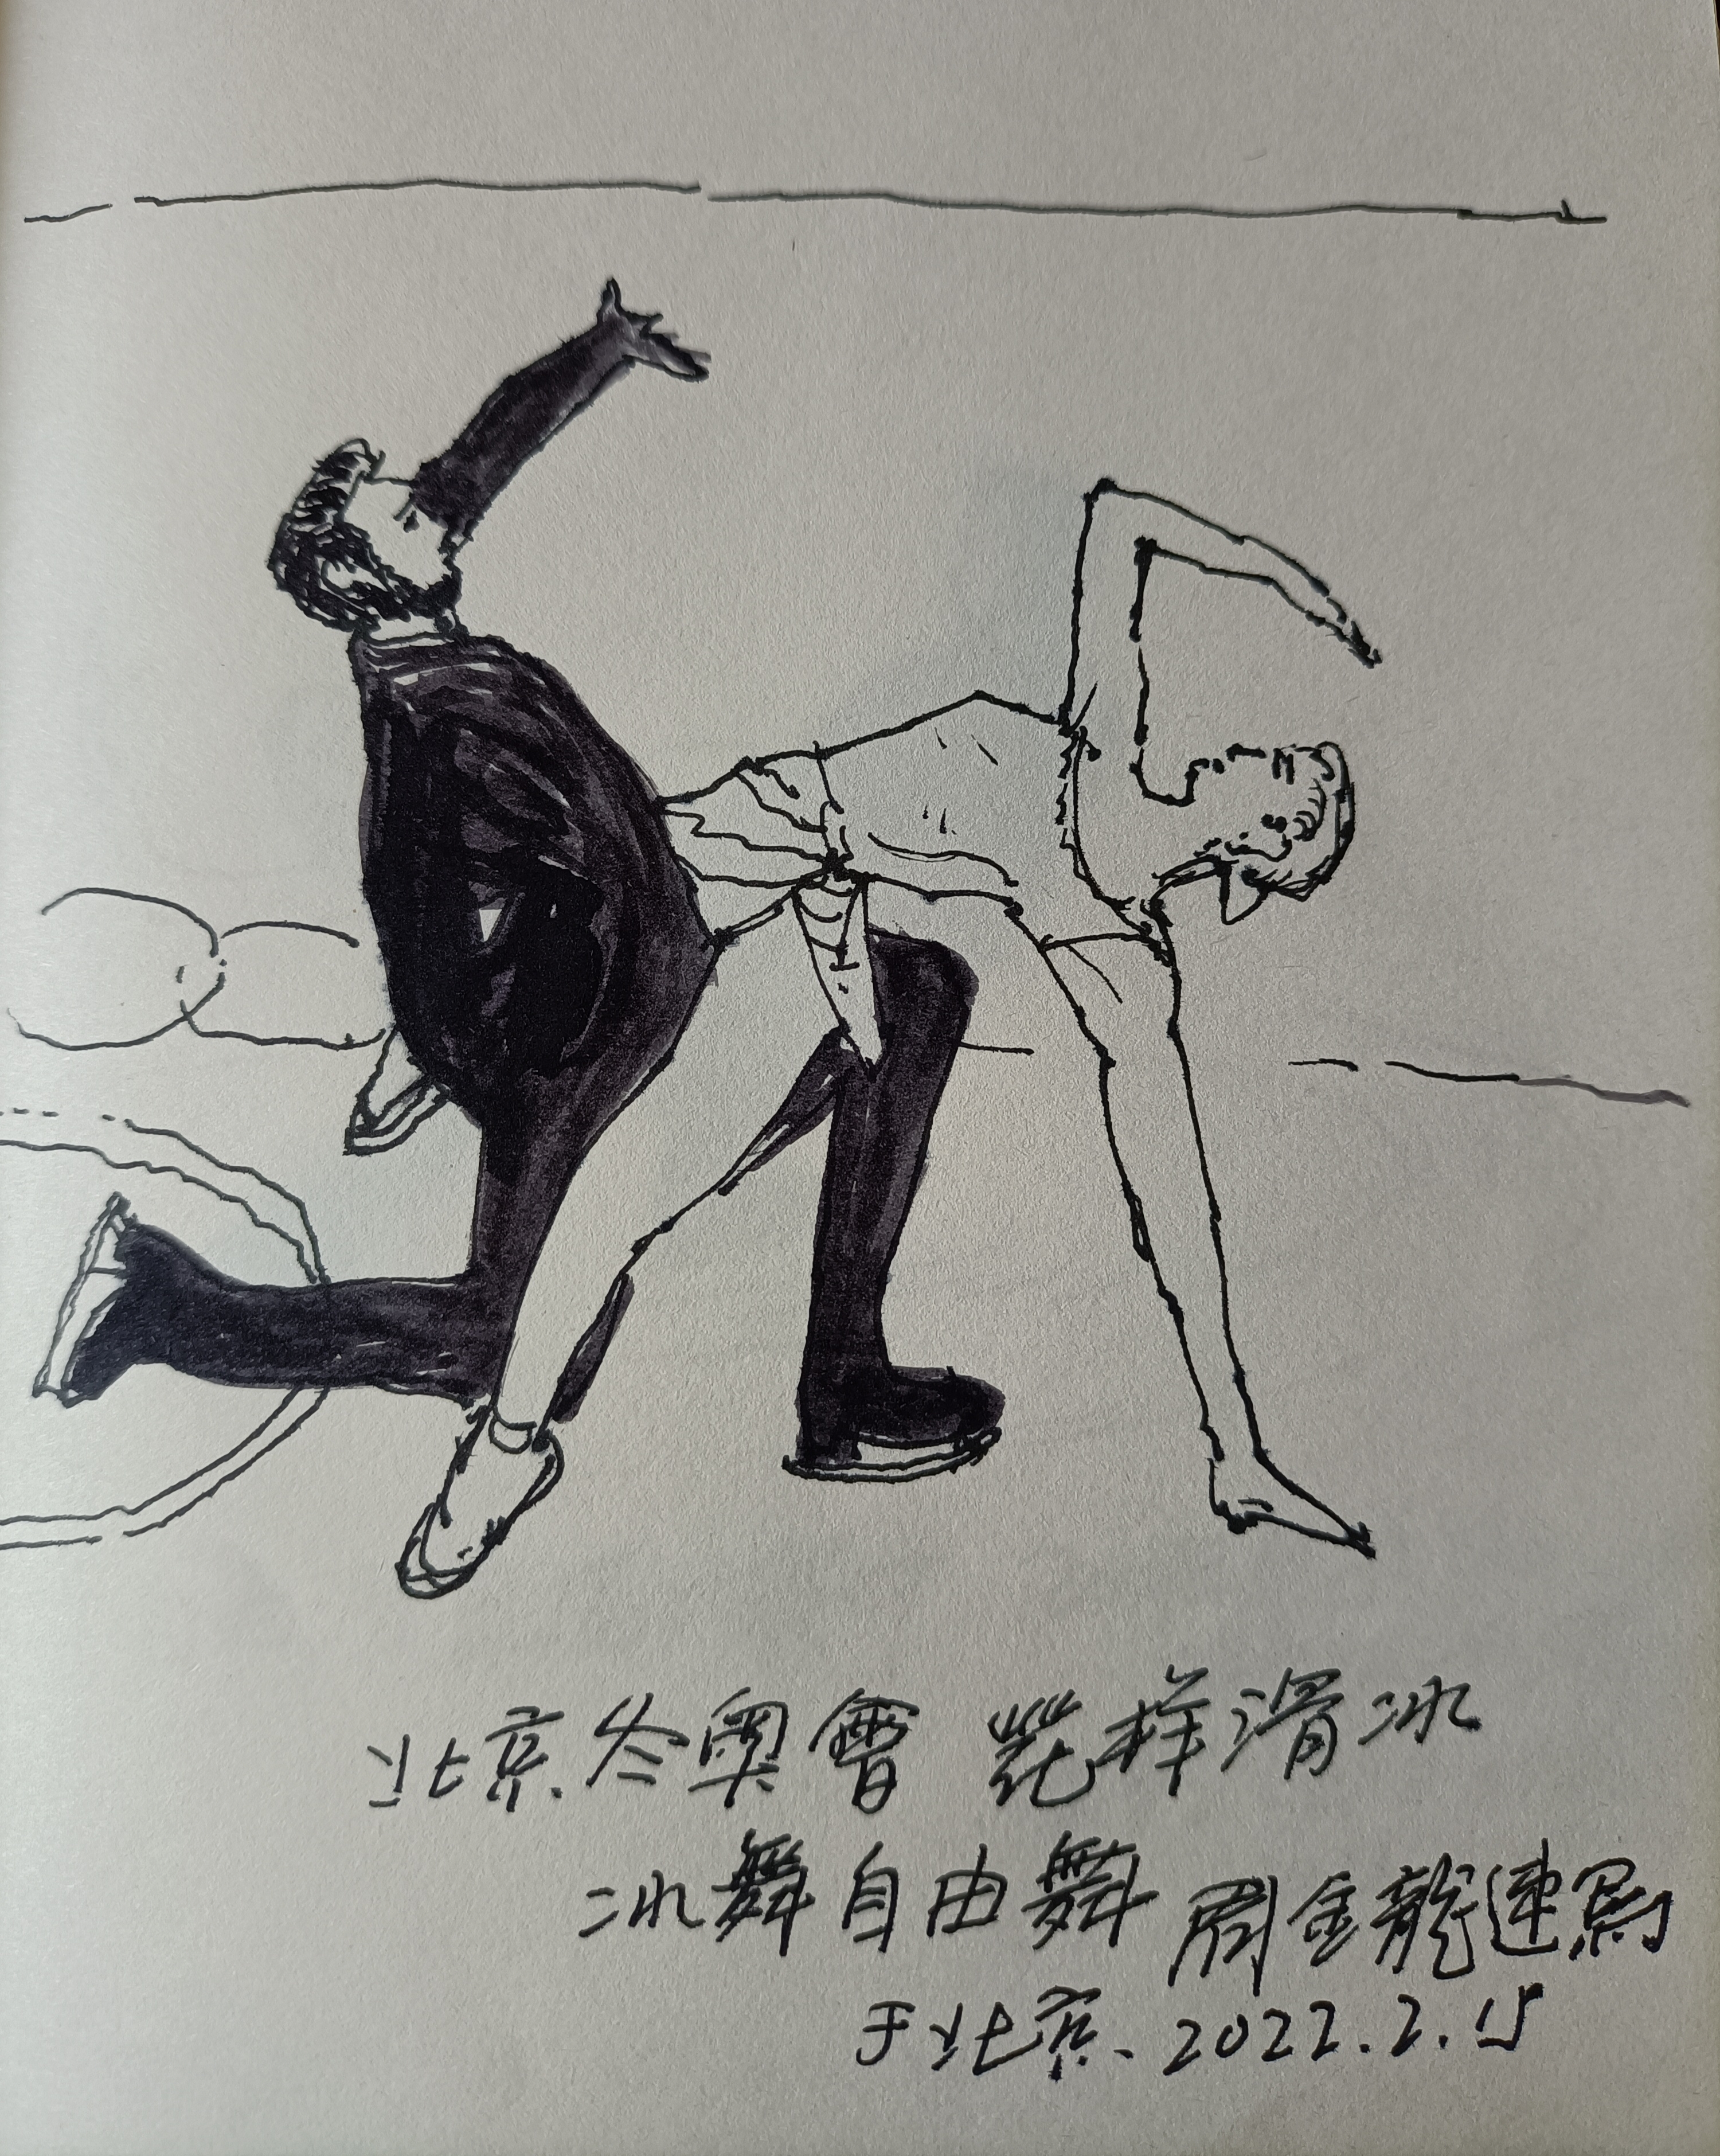 北京冬奥會 花样滑冰
冰舞自由舞 周金龍速寫
于北京.2022.2.15